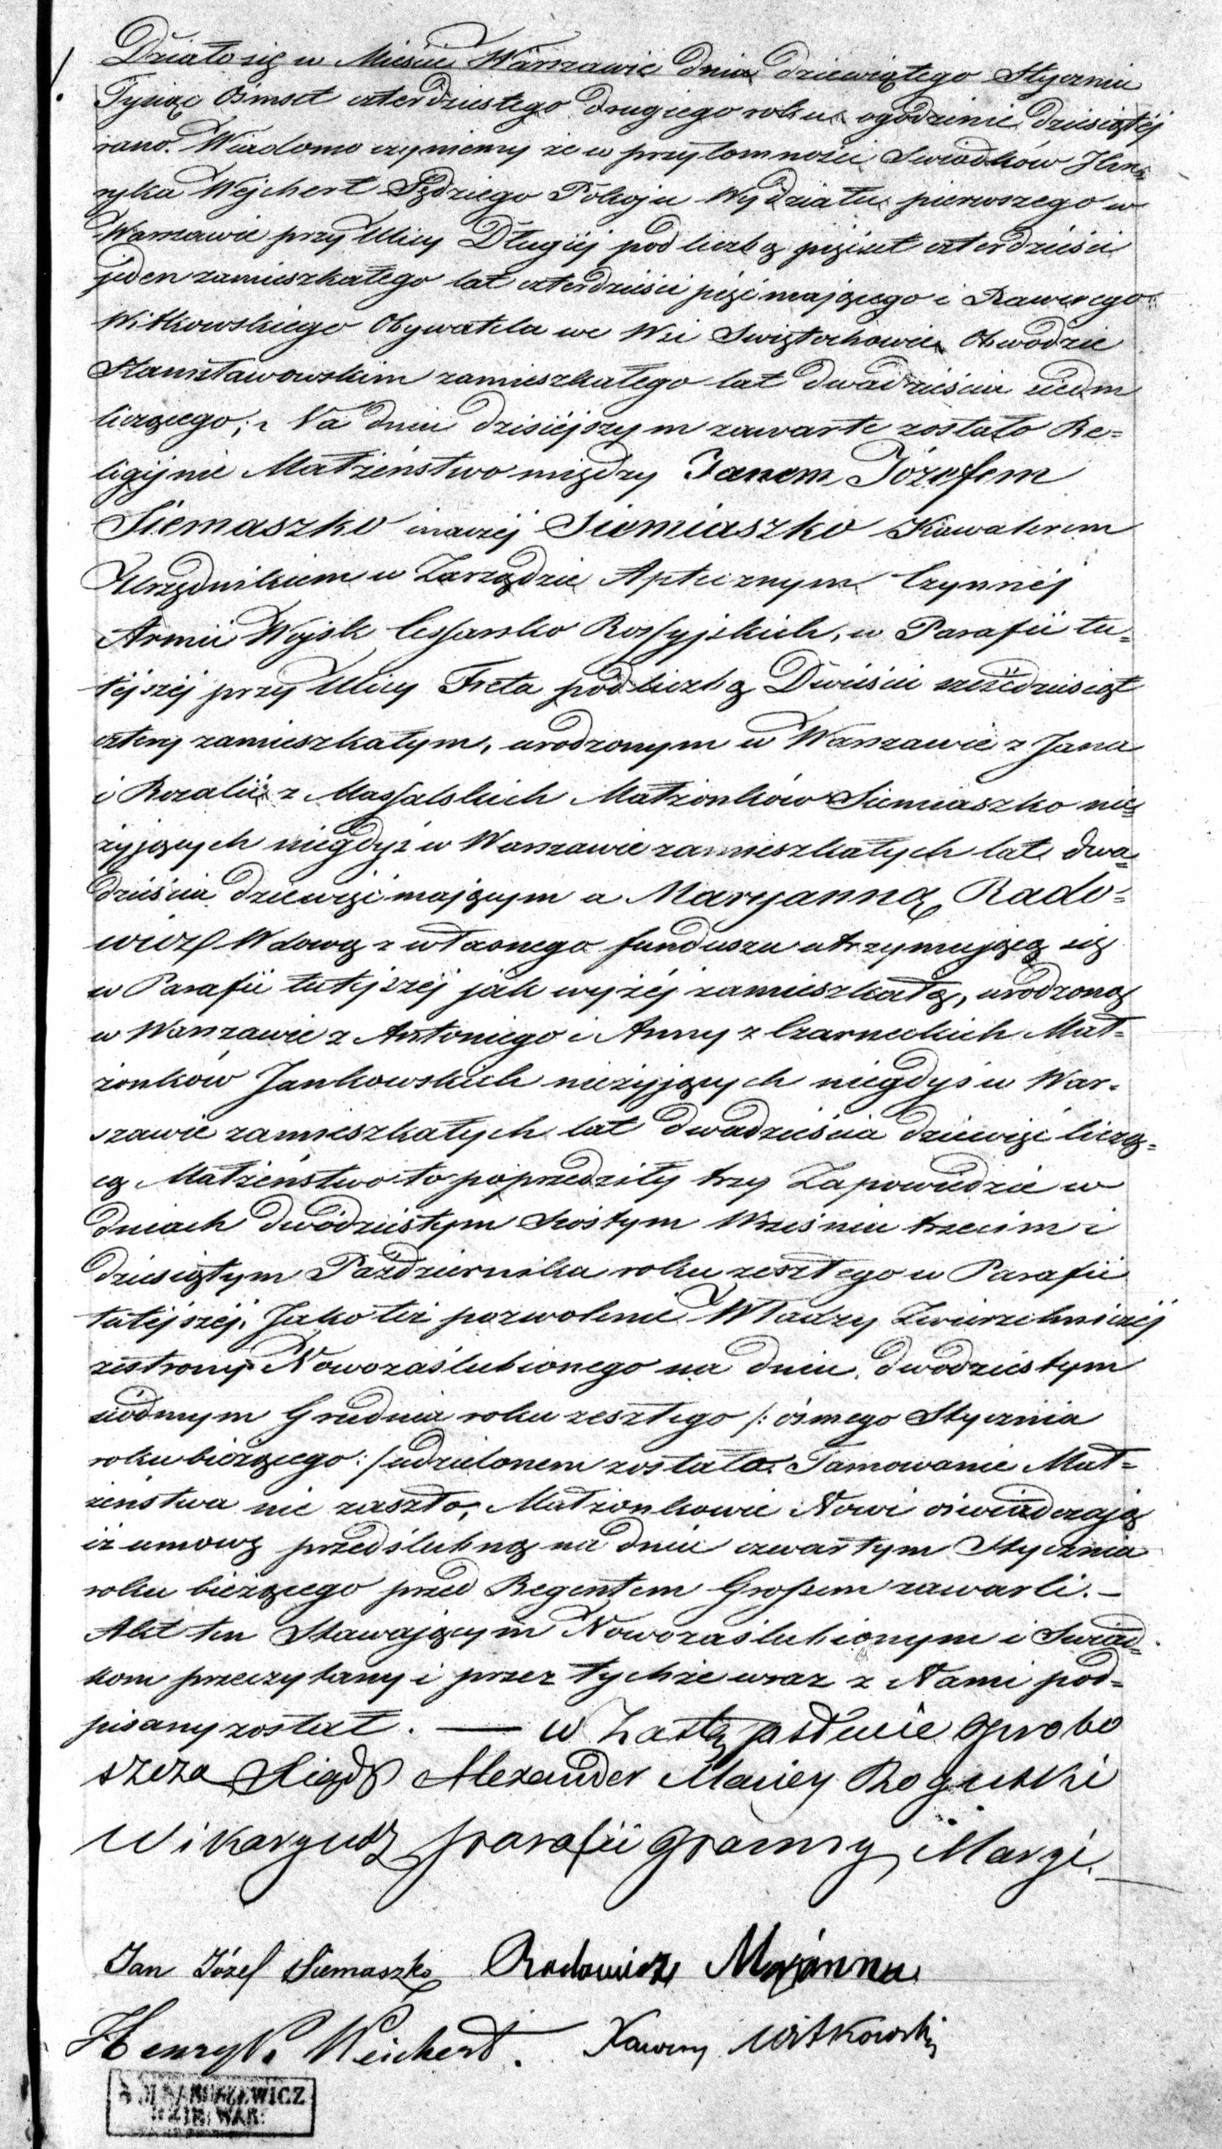 Działo się w Mieście Warszawie dnia dziewiątego Stycznia
Tysiąc Ośmset czterdziestego drugiego roku o godzinie dziesiątéj
rano. Wiadomo czyniemy że w przytomności Swiadków Hen-
ryka Wejchert Sędziego Pokoju Wydziału pierwszego w
Warszawie przy Ulicy Długiéj pod liczbą pięćset czterdzieści
jeden zamieszkałego lat czterdzieści pięć mającego i Xawerego
Witkowskiego Obywatela we Wsi Swiętochowie Obwodzie
Stanisławowskim zamieszkałego lat dwadzieścia siedm
liczącego; Na dniu dzisiéjszym zawarte zostało Re-
ligijnie Małżeństwo między Janem Józefem
Siemaszko inaczéj Siemiaszko Kawalerem
Urzędnikiem w Zarządzie Aptecznym Czynnéj
Armii Wojsk Cessarsko Rossyjskich, w Parafii tu-
téjszéj przy Ulicy Freta pod liczbą Dwieście sześćdziesiąt
cztery zamieszkałym, urodzonym w Warszawie z Jana
i Rozalii z Massalskich Małżonków Siemiaszko nie-
żyjących niegdyś w Warszawie zamieszkałych lat dwa-
dzieścia dziewięć mającym a Maryanną Rado-
wicz Wdową z własnego funduszu utrzymującą się
w Parafii tutéjszéj jak wyżéj zamieszkałą, urodzoną
w Warszawie z Antoniego i Anny z Czarneckich Mał-
żonków Jankowskich nieżyjących niegdyś w War-
szawie zamieszkałych lat dwadzieścia dziewięć liczą-
cą Małżeństwo to poprzedziły trzy Zapowiedzie w
dniach dwódziestym szóstym Września trzecim i
dziesiątym Października roku zeszłego w Parafii
tutéjszéj. Jako też pozwolenie Władzy Zwierzchniczéj
ze strony Nowozaślubionego na dniu dwódziestym
siódmym Grudnia roku zeszłego /: ósmego Stycznia
roku bieżącego :/ udzielonem zostało. Tamowanie Mał-
żeństwa nie zaszło, Małżonkowie Nowi oświadczają
iż umowę przedślubną na dniu czwartym Stycznia
roku bieżącego przed Regentem Grossem zawarli. —
Akt ten Stawającym Nowozaślubionym i Swiad-
kom przeczytany i przez tychże wraz z Nami pod-
pisany został. — w Zastępstwie Probo
szcza Xiądz Alexander Maciey Rogutski
Wikaryusz parafii Panny Maryi.
Jan Józef Siemaszko Radowicz Maryanna
Henryk Weichert. Xawery Witkowski